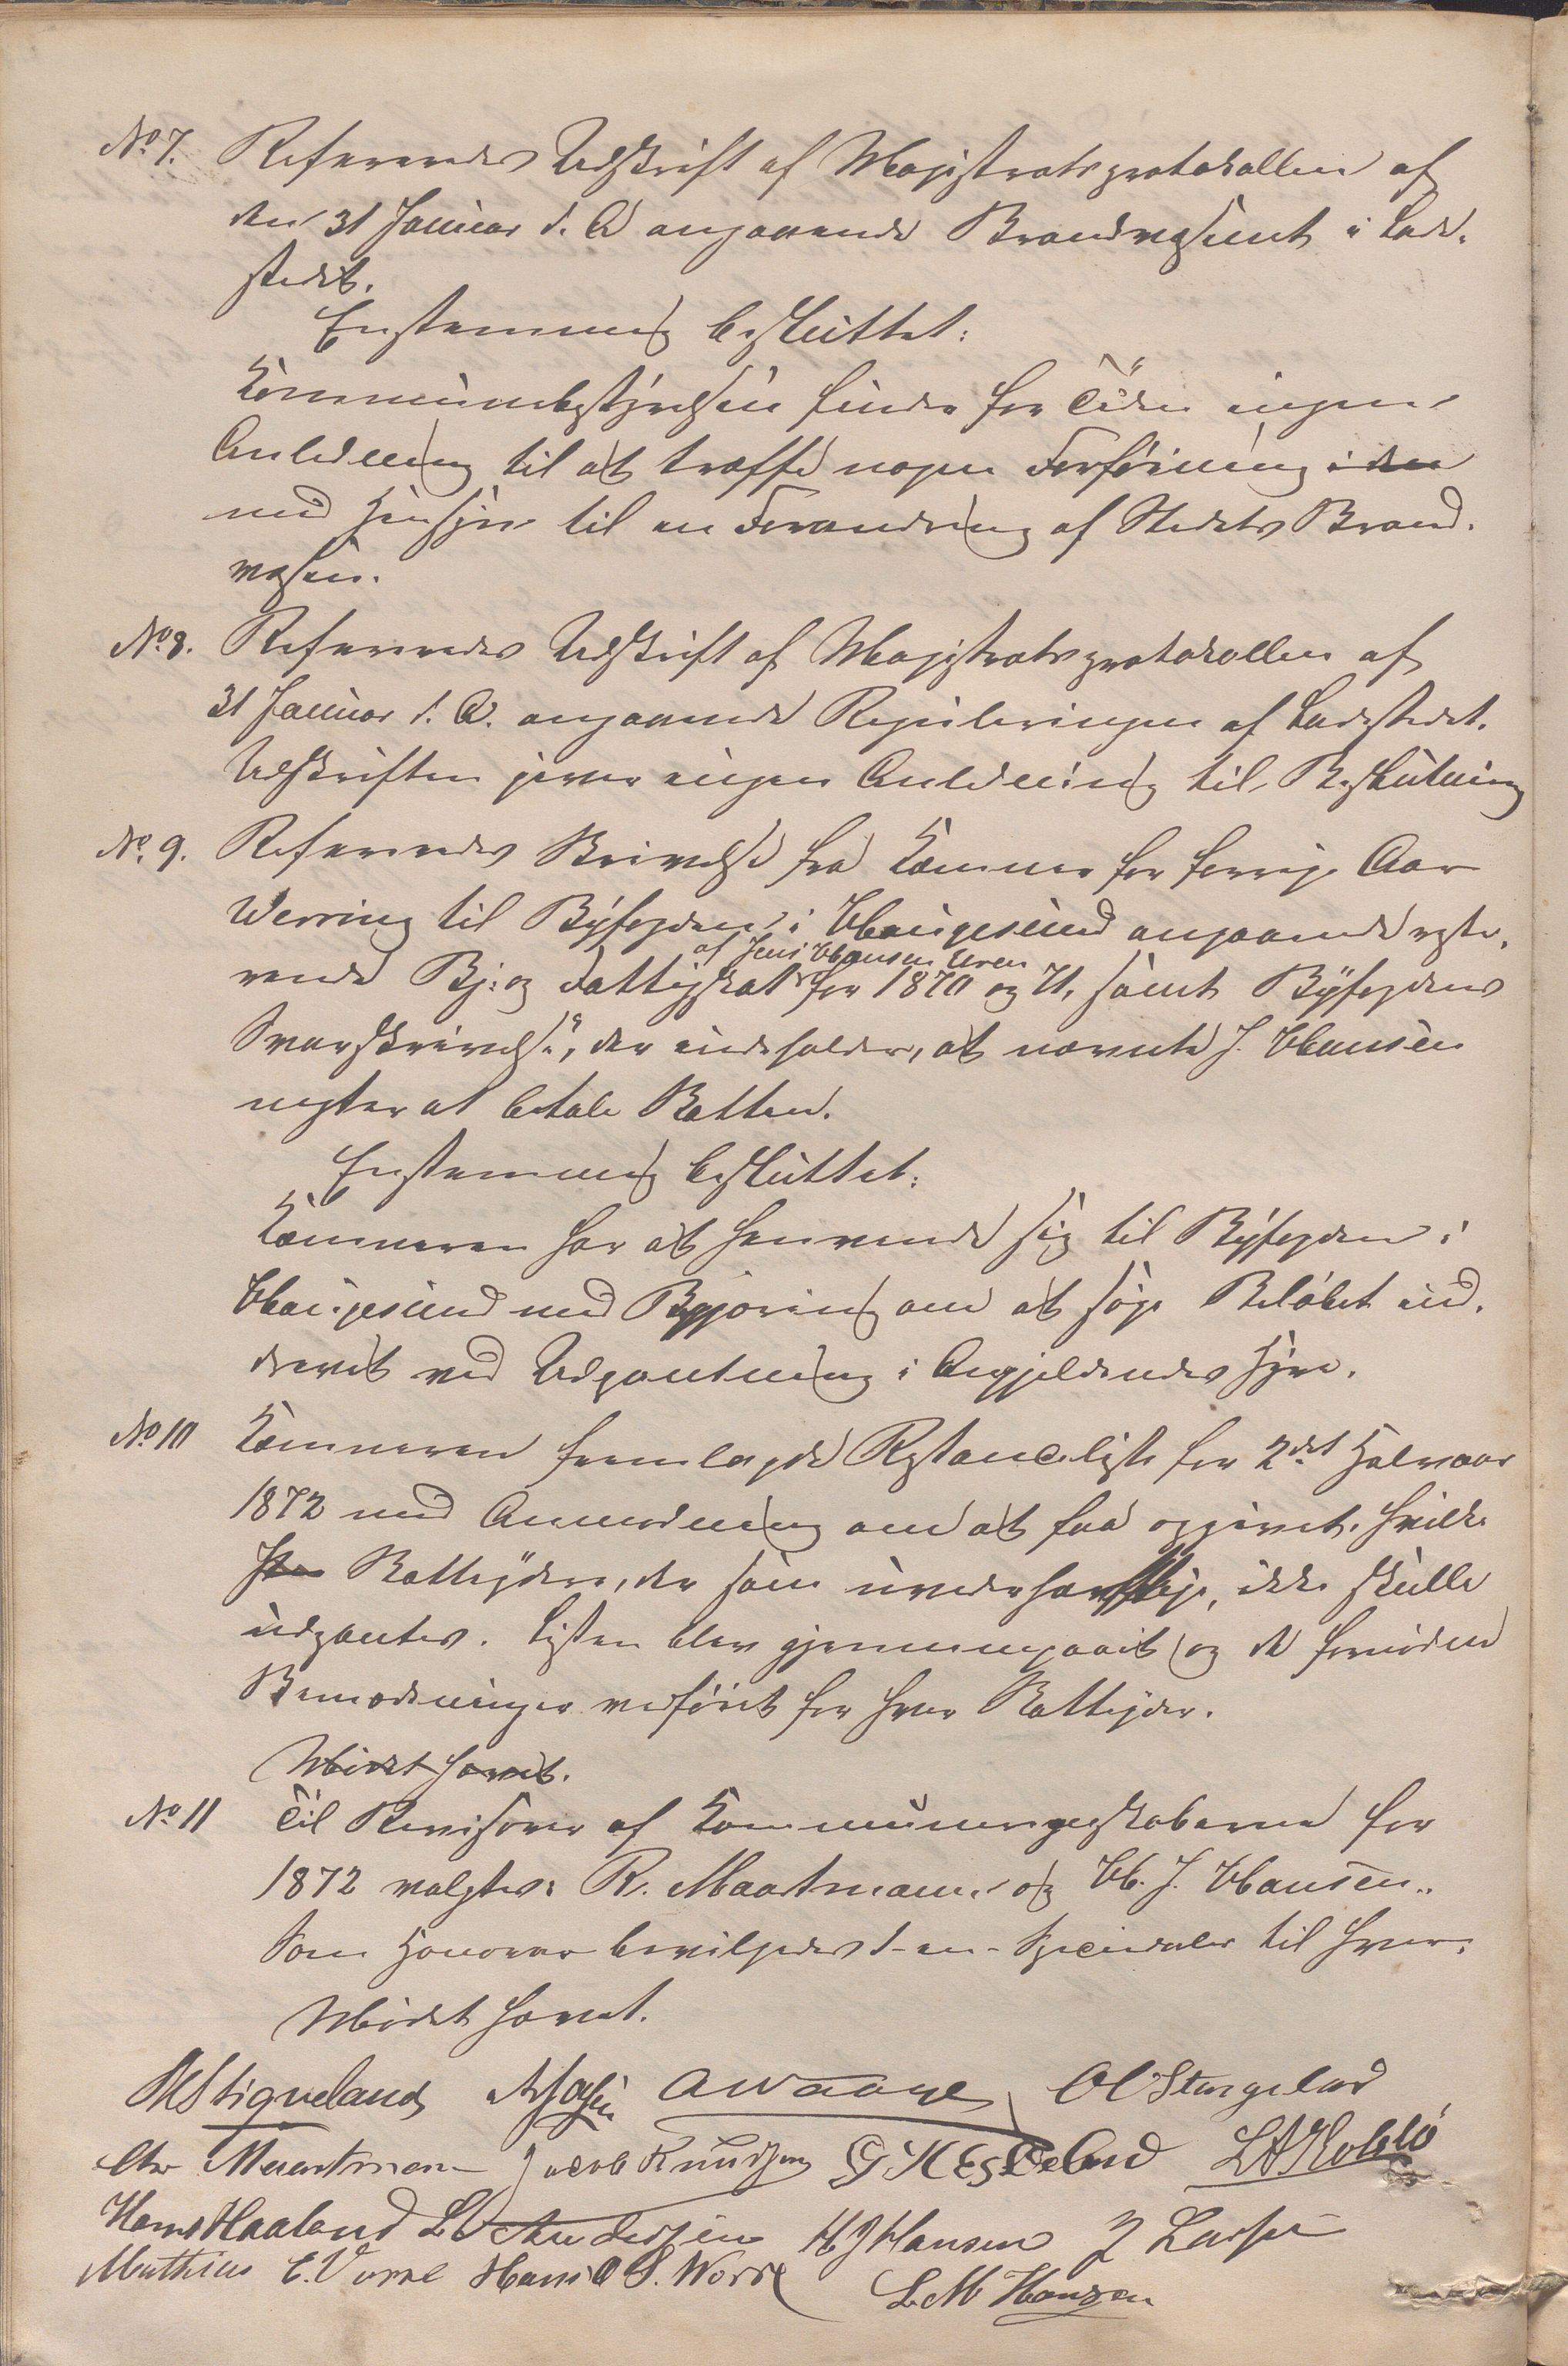 No 7. Refereredes Udskrift af Magistratsprotokollen af
den 31 Januar d. A angaaende Brandvæsenet i Lade-
stedet.
Enstemmig besluttet:
Kommunebestyrelsen finder for Tiden ingen
Anledning til at træffe nogen Forføining i den
med Hensyn til en Forandring af Stedets Brand-
væsen.
No 8. Refereredes Udskrift af Magistratsprotokollen af
31 Januar d. A. angaaende Reguleringen af Ladestedet.
Udskriften gaver ingen Anledning til Beslutning
No. 9. Refereredes Skrivelse fra Kæmner for forrige Aar
Werring til Byfogden i Haugesund angaaende reste-
af Jens Hansen Uren
rende By- og Fattigskat for 1870 og 71, samt Byfogdens
Svarskrivelse, der indeholder, at nævnte J. Hansen
negter at betale Skatten.
Enstemmig besluttet:
Kæmneren har at henvende sig til Byfogden i
Haugesund med Begjæring om at søge Beløbet ind-
drevet ved Udpantning i Angjeldendes Hyre.
No 10 Kæmneren fremlagde Restanceliste for 2det Halvaar
1872 med Anmodning om at faa opgivet, hvilke
Skatteydere, der som uvederhæftige, ikke skulle
udpantes. Listen blev gjennemgaaet og de fornødne
Bemærkninger vedføiet for hver Skatteyder.
Mødet hævet.
No 11 Til Revisorer af Kommuneregnskaberne for
1872 valgtes: R. Maartmann og H. J. Hansen.
Som Honorar bevilgedes 1 - en - Speciedaler til hver.
Mødet hævet.
Stiqueland A Waage Ol Stangeland
Chr Maartmann Jacob Knudsen G K Eskeland L A Koldø
Hans Haaland L Andersen H J Hansen J Larsen
Mathias E. Vorre Hans O S. Worre L M Hansen